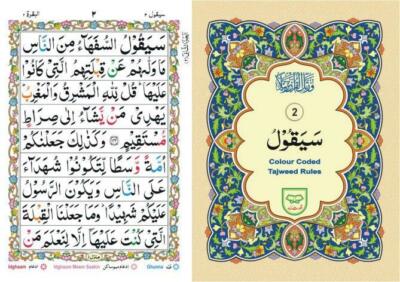 سيقول ٢
٢
البقرة ٢
سَيَقُوْلُ السُّفَهَآءُ مِنَ النَّاسِ
مَا وَلّٰىهُمْ عَنْ قِبْلَتِهِمُ الَّتِيْ كَانُوْا
عَلَيْهَا ؕ قُلْ لِّلّٰهِ الْمَشْرِقُ وَالْمَغْرِبُ ؕ
يَهْدِيْ مَنْ يَّشَآءُ اِلٰى صِرَاطٍ
مُّسْتَقِيْمٍ ﴿۱۴۲﴾ وَكَذٰلِكَ جَعَلْنٰكُمْ
اُمَّةً وَّسَطًا لِّتَكُوْنُوْا شُهَدَآءَ
عَلَى النَّاسِ وَيَكُوْنَ الرَّسُوْلُ
عَلَيْكُمْ شَهِيْدًا ؕ وَمَا جَعَلْنَا الْقِبْلَةَ
الَّتِيْ كُنْتَ عَلَيْهَاۤ اِلَّا لِنَعْلَمَ مَنْ
Idghaam ادغام Idghaam Meem Saakin ادغام ميم ساكن Ghunna غنه
2
سَيَقُوْلُ
Colour Coded
Tajweed Rules